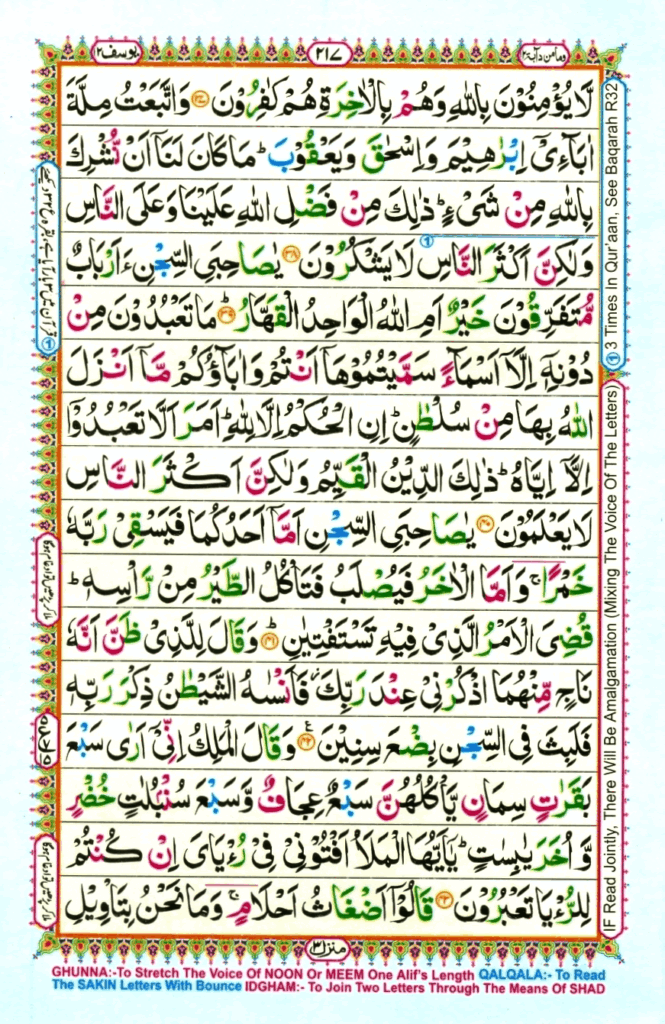 وما من دآبة ١٢
٢١٧
يوسف ١٢
لَّا يُؤْمِنُوْنَ بِاللهِ وَهُمْ بِالْاٰخِرَةِ هُمْ كٰفِرُوْنَ ۝٣٧ وَاتَّبَعْتُ مِلَّةَ
اٰبَآءِیْٓ اِبْرٰهِيْمَ وَاِسْحٰقَ وَيَعْقُوْبَ ؕ مَا كَانَ لَنَآ اَنْ نُّشْرِكَ
بِاللهِ مِنْ شَیْءٍ ؕ ذٰلِكَ مِنْ فَضْلِ اللهِ عَلَيْنَا وَعَلَى النَّاسِ
وَلٰكِنَّ اَكْثَرَ النَّاسِ لَا يَشْكُرُوْنَ ۝٣٨ يٰصَاحِبَیِ السِّجْنِ ءَاَرْبَابٌ
مُّتَفَرِّقُوْنَ خَيْرٌ اَمِ اللهُ الْوَاحِدُ الْقَهَّارُ ۝٣٩ؕ مَا تَعْبُدُوْنَ مِنْ
دُوْنِهٖٓ اِلَّآ اَسْمَآءً سَمَّيْتُمُوْهَآ اَنْتُمْ وَاٰبَآؤُكُمْ مَّآ اَنْزَلَ
اللهُ بِهَا مِنْ سُلْطٰنٍ ؕ اِنِ الْحُكْمُ اِلَّا لِلّٰهِ ؕ اَمَرَ اَلَّا تَعْبُدُوْٓا
اِلَّآ اِيَّاهُ ؕ ذٰلِكَ الدِّيْنُ الْقَيِّمُ وَلٰكِنَّ اَكْثَرَ النَّاسِ
لَا يَعْلَمُوْنَ ۝٤٠ يٰصَاحِبَیِ السِّجْنِ اَمَّآ اَحَدُكُمَا فَيَسْقِیْ رَبَّهٗ
خَمْرًا ۚ وَاَمَّا الْاٰخَرُ فَيُصْلَبُ فَتَاْكُلُ الطَّيْرُ مِنْ رَّاْسِهٖ ؕ
قُضِیَ الْاَمْرُ الَّذِیْ فِيْهِ تَسْتَفْتِيٰنِ ۝٤١ؕ وَقَالَ لِلَّذِیْ ظَنَّ اَنَّهٗ
نَاجٍ مِّنْهُمَا اذْكُرْنِیْ عِنْدَ رَبِّكَ ؗ فَاَنْسٰىهُ الشَّيْطٰنُ ذِكْرَ رَبِّهٖ
فَلَبِثَ فِی السِّجْنِ بِضْعَ سِنِيْنَ ۝٤٢ع وَقَالَ الْمَلِكُ اِنِّیْٓ اَرٰى سَبْعَ
بَقَرٰتٍ سِمَانٍ يَّاْكُلُهُنَّ سَبْعٌ عِجَافٌ وَّسَبْعَ سُنْۢبُلٰتٍ خُضْرٍ
وَّاُخَرَ يٰبِسٰتٍ ؕ يٰٓاَيُّهَا الْمَلَاُ اَفْتُوْنِیْ فِیْ رُءْيَایَ اِنْ كُنْتُمْ
لِلرُّءْيَا تَعْبُرُوْنَ ۝٤٣ قَالُوْٓا اَضْغَاثُ اَحْلَامٍ ۚ وَمَا نَحْنُ بِتَاْوِيْلِ
① 3 Times In Qur'aan, See Baqarah R32
IF Read Jointly, There Will Be Amalgamation (Mixing The Voice Of The Letters)
منزل ٣
GHUNNA:-To Stretch The Voice Of NOON Or MEEM One Alif's Length QALQALA:- To Read
The SAKIN Letters With Bounce IDGHAM:- To Join Two Letters Through The Means Of SHAD